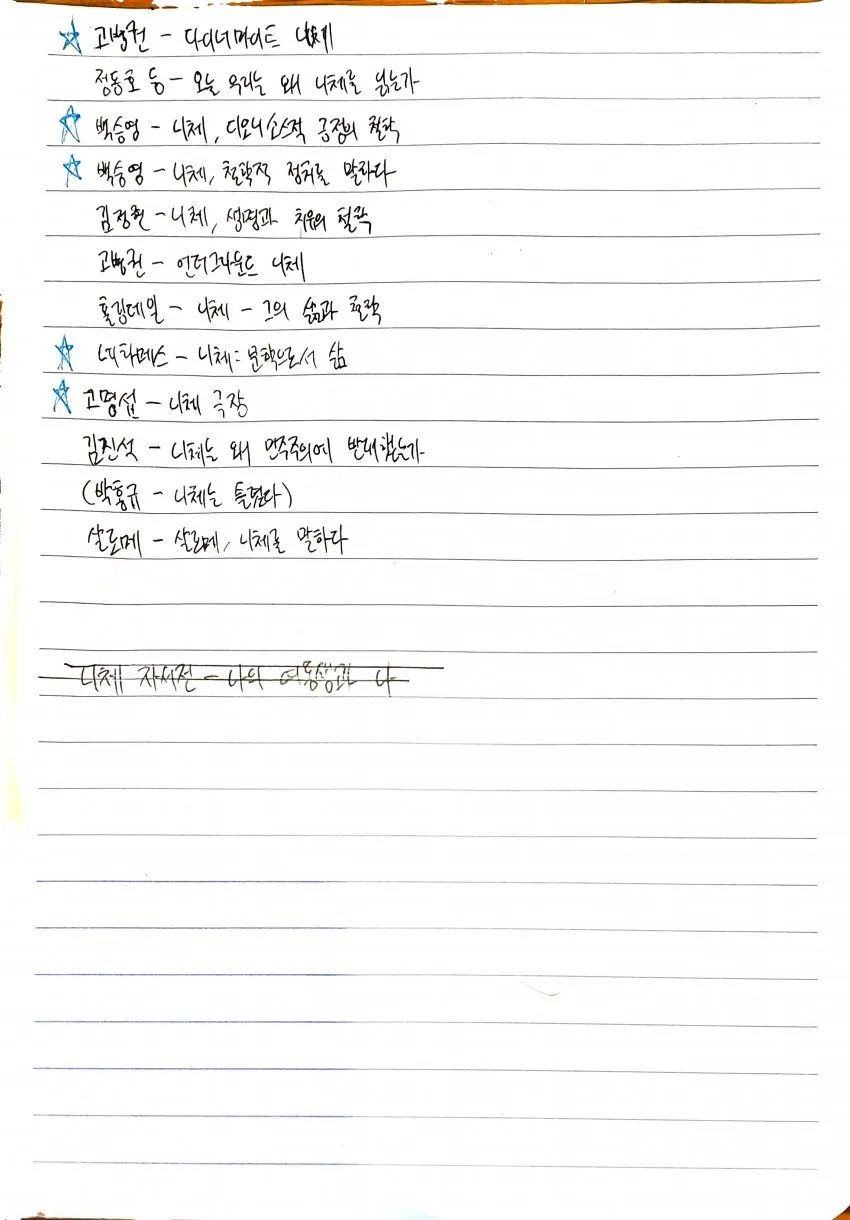 ☆ 고병권 - 다이너마이트 니체
정동호 등 - 오늘 우리는 왜 니체를 읽는가
☆ 백승영 - 니체, 디오니소스적 긍정의 철학
☆ 백승영 - 니체, 철학적 정치를 말하다
김정현 - 니체, 생명과 치유의 철학
고병권 - 언더그라운드 니체
홀링데일 - 니체 - 그의 삶과 철학
☆ 네하메스 - 니체: 문학으로서 삶
☆ 고명섭 - 니체 극장
김진석 - 니체는 왜 민주주의에 반대했는가
(박홍규 - 니체는 틀렸다)
살로메 - 살로메, 니체를 말하다
니체 자서전 - 나의 여동생과 나